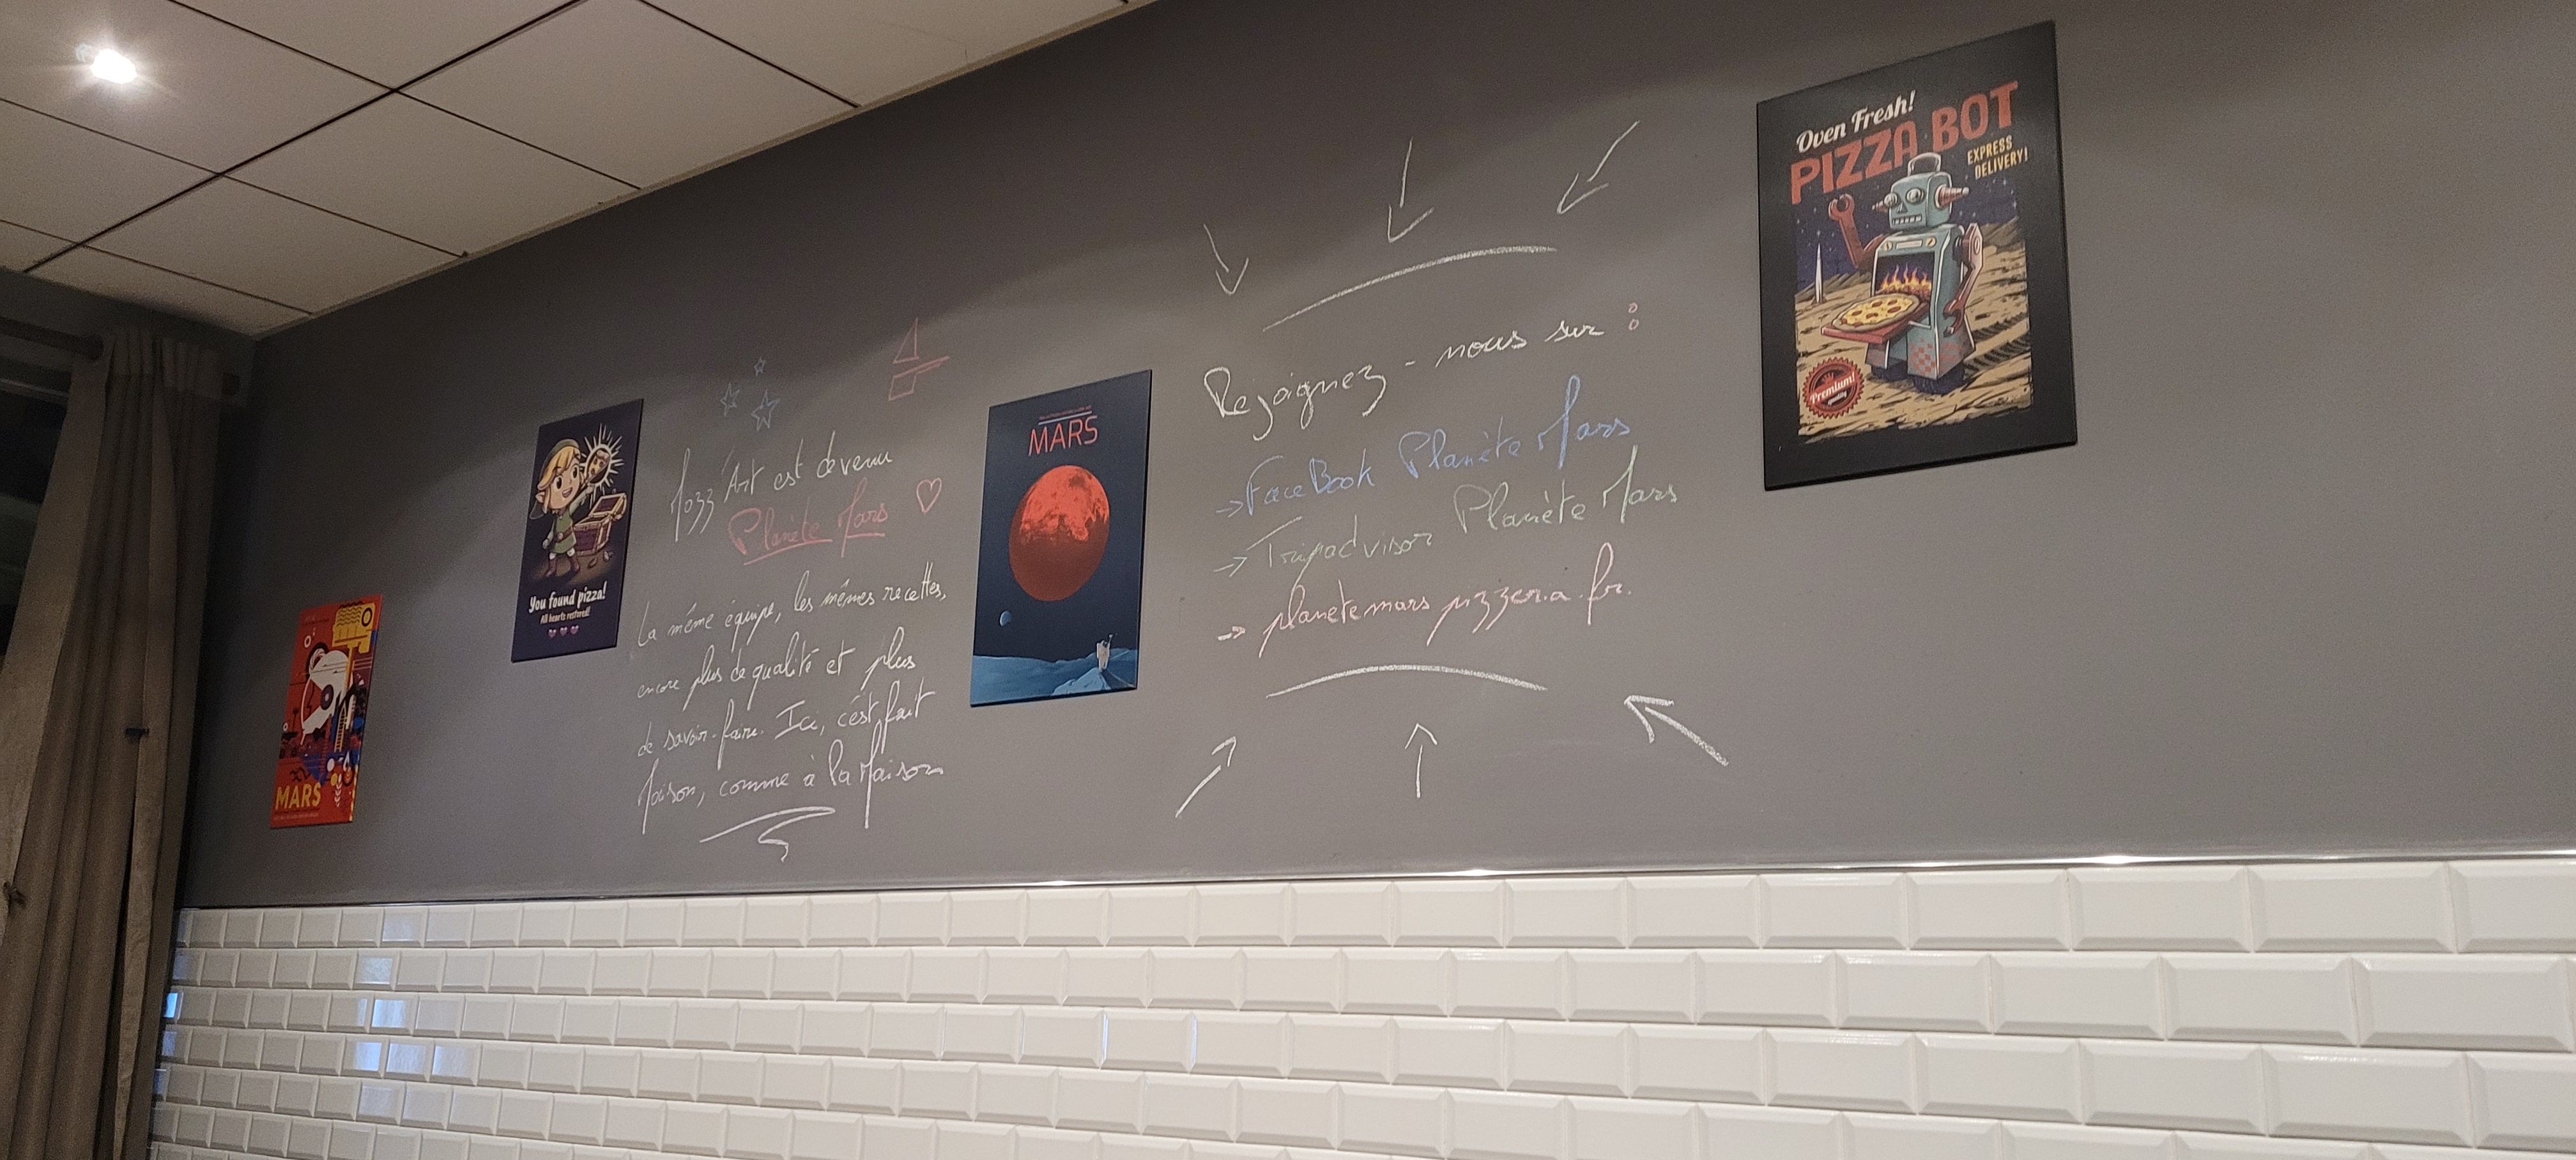 MARS
You found pizza!
All hearts restored!
Mozz'Art est devenu
Planète Mars ♡
La même équipe, les mêmes recettes,
encore plus de qualité et plus
de savoir-faire. Ici, c'est fait
Maison, comme à la Maison
MARS
Rejoignez-nous sur :
→ FaceBook Planète Mars
→ Tripadvisor Planète Mars
→ planetemars pizzeria.fr.
Oven Fresh!
PIZZA BOT
EXPRESS
DELIVERY!
Premium!
quality